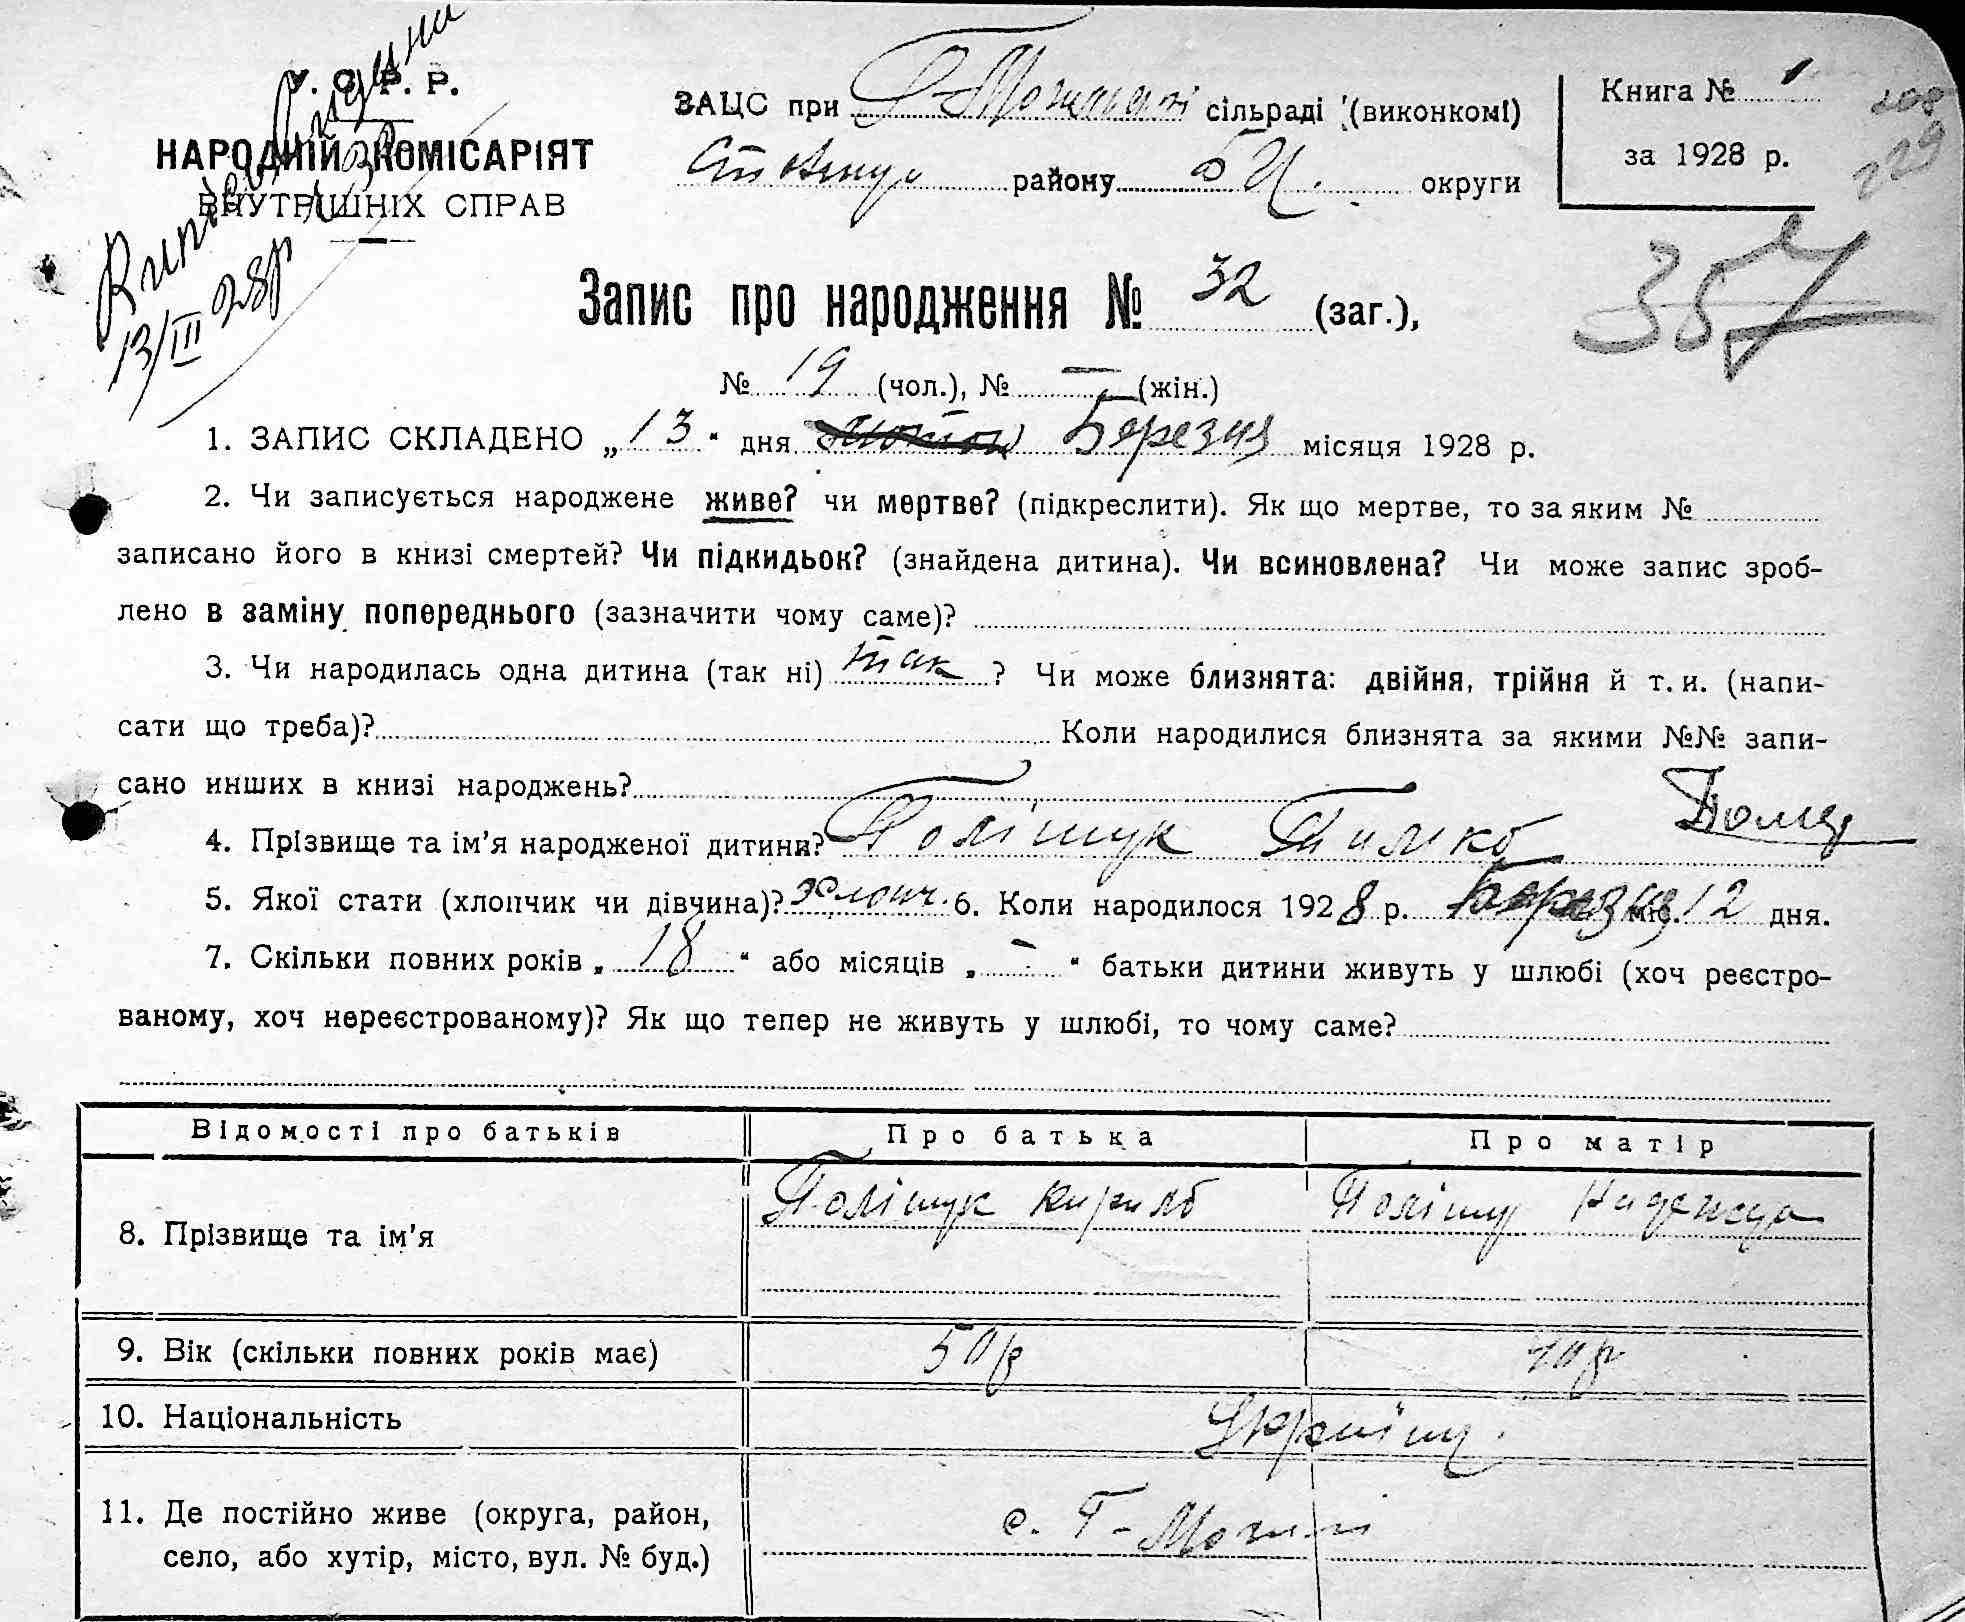 У. С. Р. Р.
НАРОДНІЙ КОМІСАРІЯТ
ВНУТРІШНІХ СПРАВ
13/III 28р
ЗАЦС при сільраді (виконкомі)
району БЦ. округи
Книга № 1
за 1928 р.
229
357
Запис про народження № 32 (заг.),
№ 19 (чол.), № — (жін.)
1. ЗАПИС СКЛАДЕНО „13“ дня Березня місяця 1928 р.
2. Чи записується народжене живе? чи мертве? (підкреслити). Як що мертве, то за яким №
записано його в книзі смертей? Чи підкидьок? (знайдена дитина). Чи всиновлена? Чи може запис зроб-
лено в заміну попереднього (зазначити чому саме)?
3. Чи народилась одна дитина (так ні) так? Чи може близнята: двійня, трійня й т. и. (напи-
сати що треба)? Коли народилися близнята за якими №№ запи-
сано инших в книзі народжень?
4. Прізвище та ім’я народженої дитини? Поліщук
5. Якої стати (хлопчик чи дівчина)? хлопч. 6. Коли народилося 1928 р. Березня міс. 12 дня.
7. Скільки повних років „18“ або місяців „-“ батьки дитини живуть у шлюбі (хоч реєстро-
ваному, хоч нереєстрованому)? Як що тепер не живуть у шлюбі, то чому саме?
Відомості про батьків Про батька Про матір
8. Прізвище та ім’я Поліщук Кирило Поліщук Надежда
9. Вік (скільки повних років має) 50р 40р
10. Національність Українці
11. Де постійно живе (округа, район,
село, або хутір, місто, вул. № буд.) с. Г-